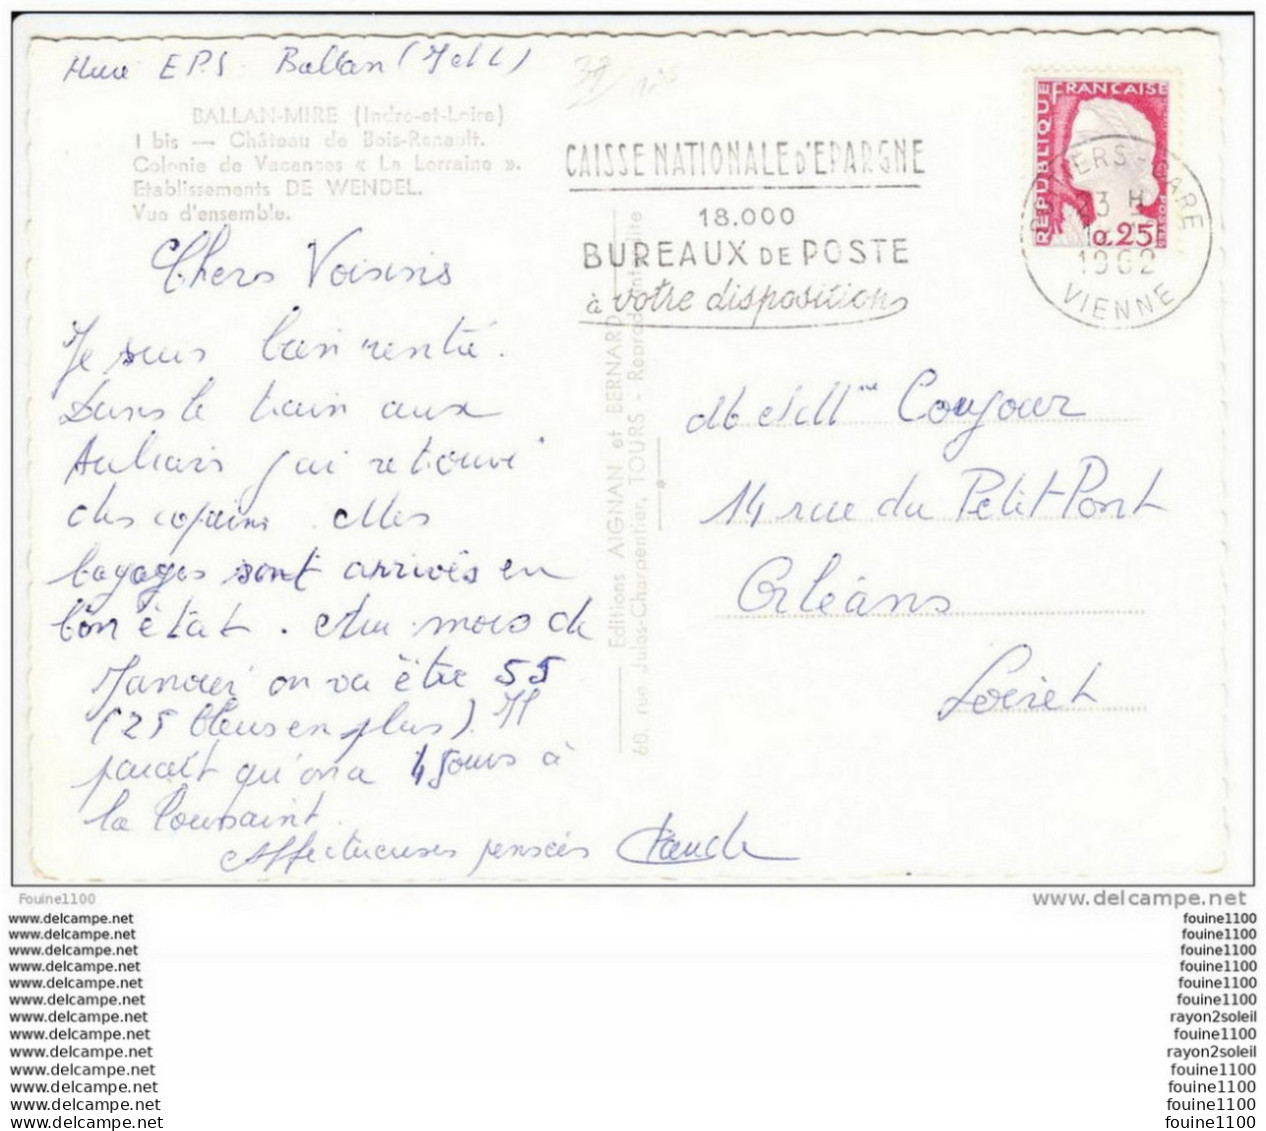 EPS Ballan (I et L)
BALLAN-MIRE (Indre-et-Loire)
1 bis — Château de Bois-Renault.
Colonie de Vacances « La Lorraine ».
Etablissements DE WENDEL.
Vue d'ensemble.
Chers Voisins
Je suis bien rentré.
Dans le train aux
Aubrais j'ai retrouvé
des copains. Mes
bagages sont arrivés en
bon état. Au mois de
Janvier on va être 55
(25 bleus en plus). Il
paraît qu'on a 4 jours à
la Toussaint.
Affectueuses pensées Claude
Editions AIGNAN et BERNARD
60, rue Jules-Charpentier, TOURS - Reprod. interdite
CAISSE NATIONALE D'EPARGNE
18.000
BUREAUX DE POSTE
à votre disposition
REPUBLIQUE FRANCAISE
0,25
GARE
23 H
1962
VIENNE
M et Mme Coujour
14 rue du Petit Pont
Orléans
Loiret
Fouine1100
www.delcampe.net
www.delcampe.net
www.delcampe.net
www.delcampe.net
www.delcampe.net
www.delcampe.net
www.delcampe.net
www.delcampe.net
www.delcampe.net
www.delcampe.net
www.delcampe.net
www.delcampe.net
www.delcampe.net
www.delcampe.net
fouine1100
fouine1100
fouine1100
fouine1100
fouine1100
fouine1100
rayon2soleil
fouine1100
rayon2soleil
fouine1100
fouine1100
fouine1100
fouine1100